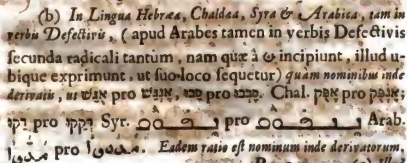 (b) In Lingua Hebræa, Chaldæa, Syra & Arabica, tam in
verbis Defectivis, (apud Arabes tamen in verbis Defectivis
secunda radicali tantum, nam quæ à و incipiunt, illud u-
bique exprimunt, ut suo loco sequetur) quàm nominibus inde
derivatis, ut אנוש pro סבו, אנש pro סבבו. Chal. אפק pro אנפק;
דקו pro דקקו Syr. pro Arab.
pro Eadem ratio est nominum inde derivatorum,